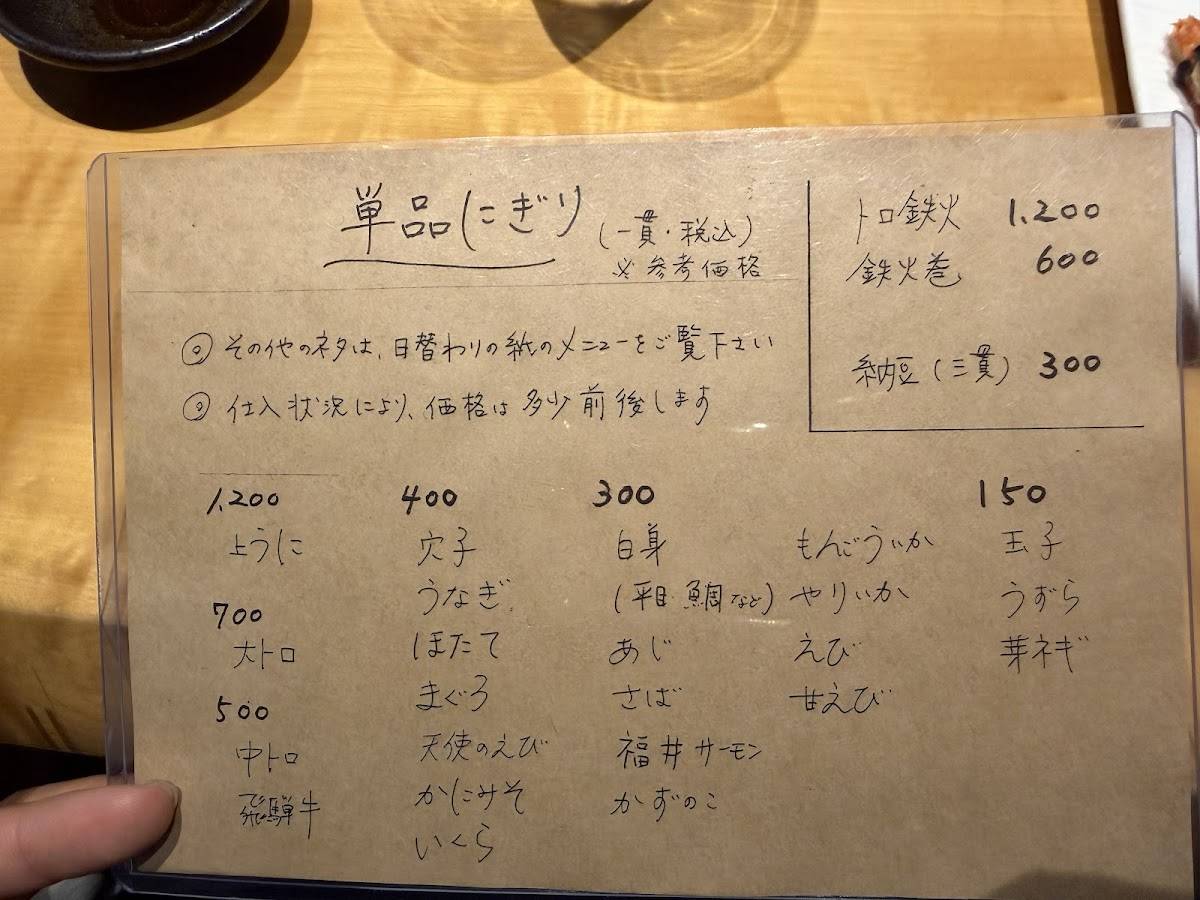 単品にぎり (一貫・税込)
※参考価格
◎ その他のネタは、日替わりの紙のメニューをご覧下さい
◎ 仕入状況により、価格は多少前後します
トロ鉄火 1,200
鉄火巻 600
納豆(三貫) 300
1,200
上うに
700
大トロ
500
中トロ
飛騨牛
400
穴子
うなぎ
ほたて
まぐろ
天使のえび
かにみそ
いくら
300
白身
(平目 鯛など)
あじ
さば
福井サーモン
かずのこ
もんごういか
やりいか
えび
甘えび
150
玉子
うずら
芽ネギ